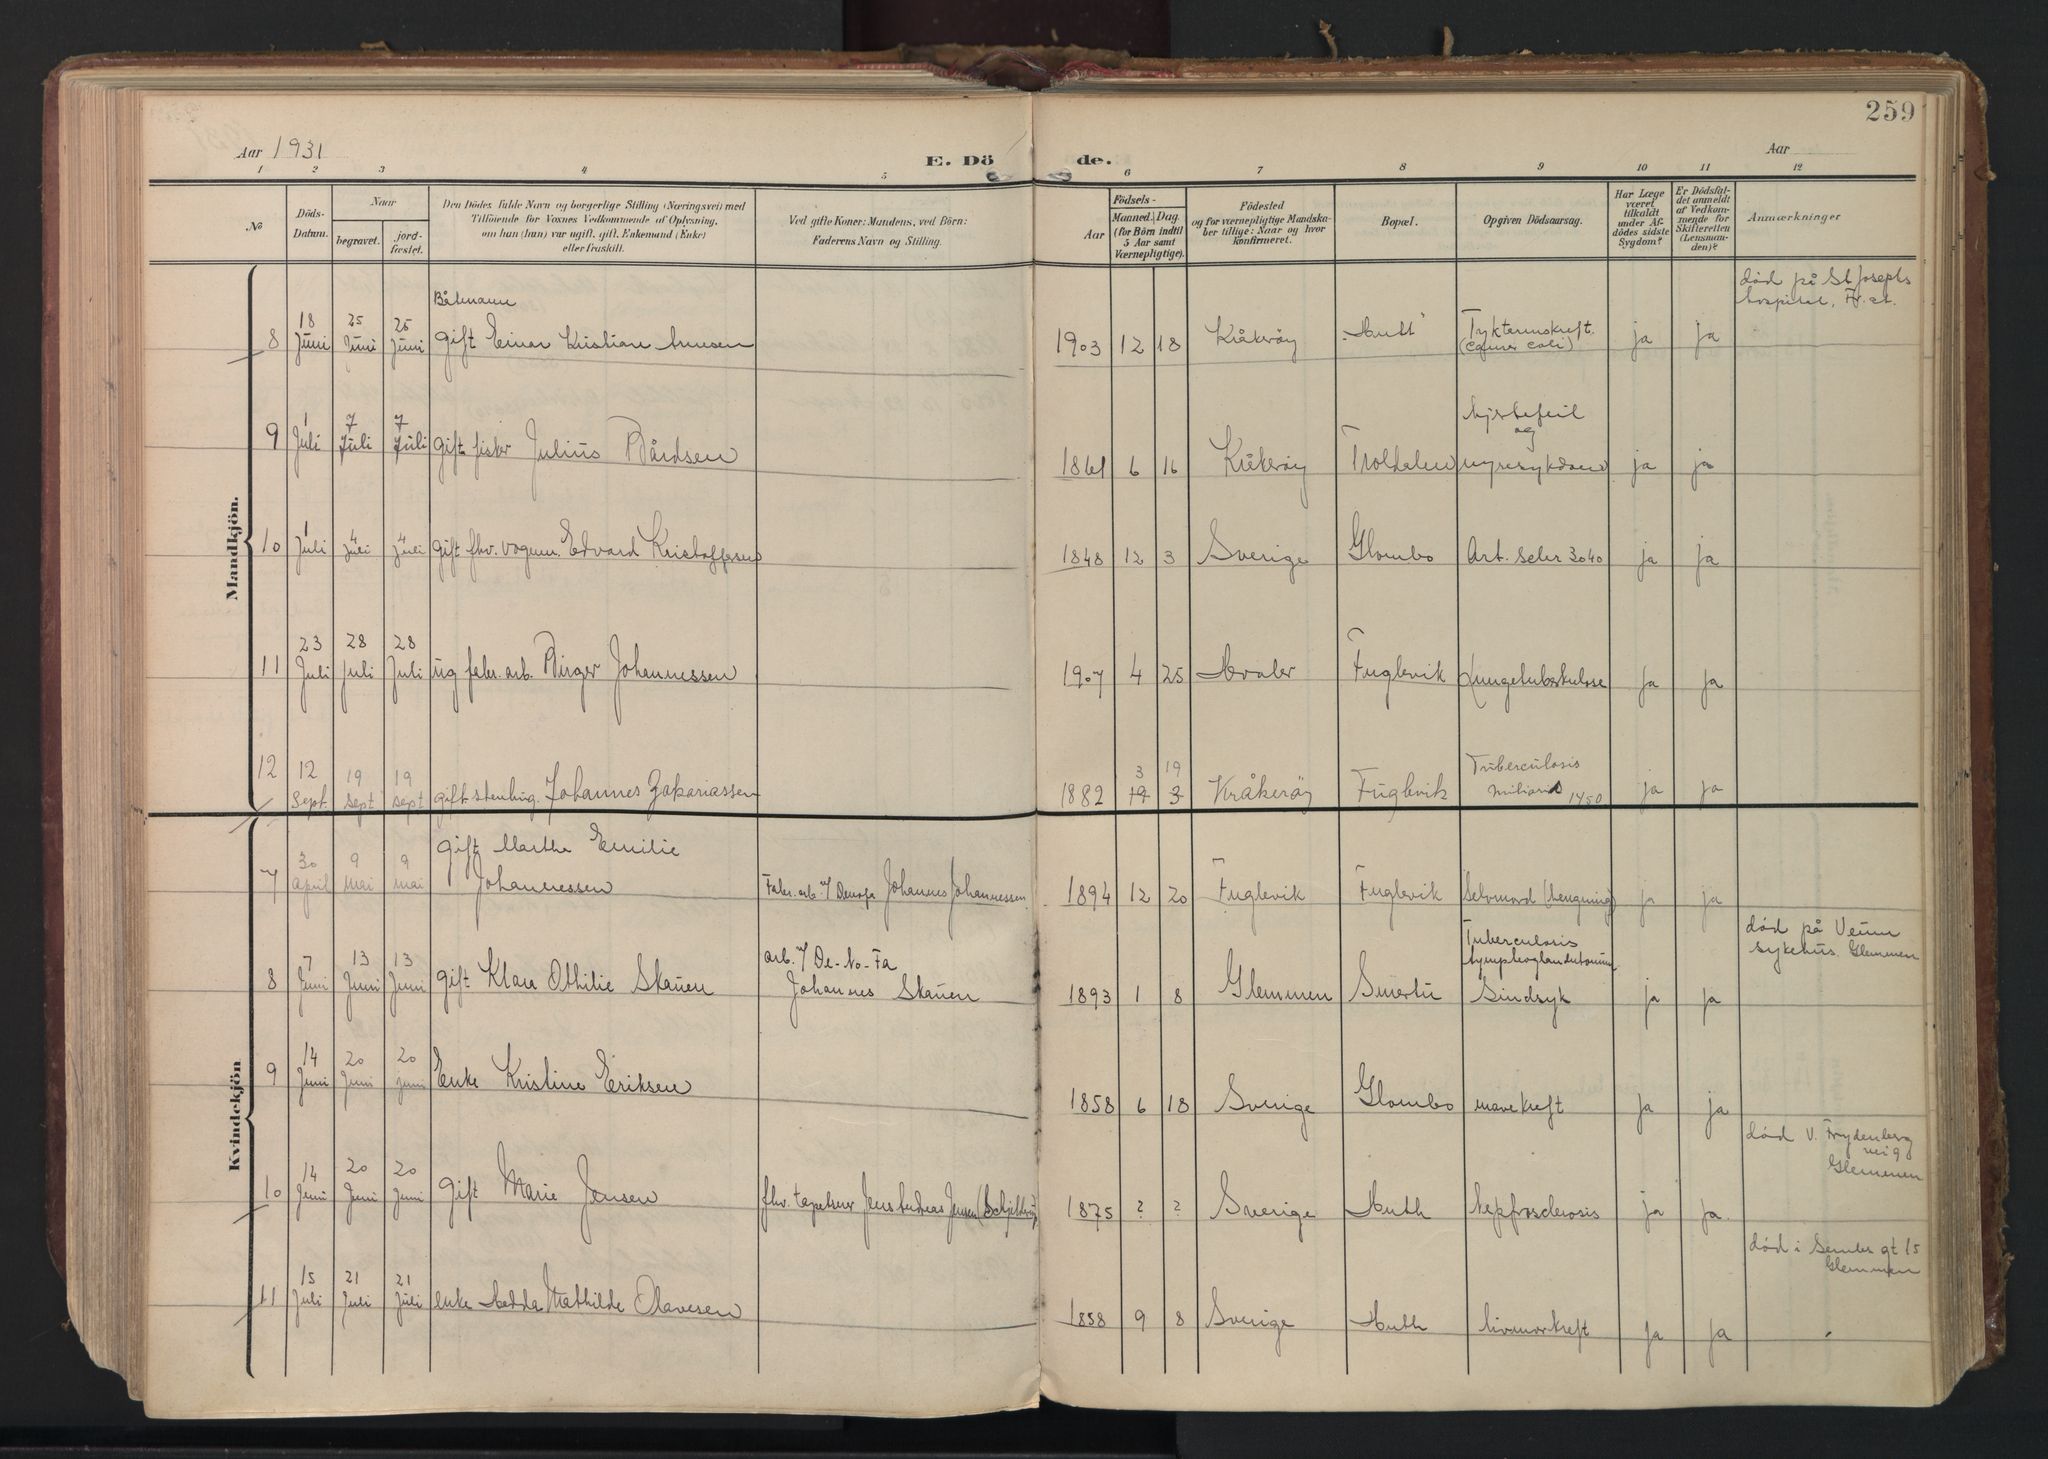 259
Aar 1931
E. Dö
de.
Aar
1 2 3 4 5 6 7 8 9 10 11 12
No
Döds-Datum.
Naar
begravet.
jord-fæstet.
Den Dödes fulde Navn og borgerlige Stilling (Næringsvei) med
Tilföiende for Voxnes Vedkommende af Oplysning,
om han (hun) var ugift, gift, Enkemand (Enke)
eller fraskilt.
Ved gifte Koner: Mandens, ved Börn:
Faderens Navn og Stilling.
Födsels-
Aar
Maaned. Dag.
(for Börn indtil
5 Aar samt
Værnepligtige).
Födested
og for værnepligtige Mandska-
ber tillige: Naar og hvor
konfirmeret.
Bopæl.
Opgiven Dödsaarsag.
Har Læge
været
tilkaldt
under Af-
dödes sidste
Sygdom?
Er Dödsfal-
det anmeldt
af Vedkom-
mende for
Skifteretten
(Lensman-
den)?
Anmærkninger
Mandkjön.
død på St Josephs
hospital, Fr.st.
Båtmann
8 18 Juni 25 Juni 25 Juni gift Einar Kristian Arnesen 1903 12 18 Kråkerøy Huth Tyktarmskreft. ja ja
9 1 Juli 7 Juli 7 Juli gift fisker Julius Bårdsen 1861 6 16 Kråkerøy Troldalen hjertefeil og nyresykdom ja ja
10 1 Juli 4 Juli 4 Juli gift fhv. vognm. Edvard Kristoffersen 1848 12 3 Sverige Glombo Art. seler 3040 ja ja
11 23 Juli 28 Juli 28 Juli ug fabr. arb. Birger Johannessen 1907 4 25 Hvaler Fuglevik Lungetuberkulose ja ja
12 12 Sept. 19 sept 19 sept gift stenhug. Johannes Zakariassen 1882 3 19 19 3 Kråkerøy Fuglevik Tuberculosis 1450 ja ja
Kvindekjön
7 30 april 9 mai 9 mai gift Marthe Emilie
Johannessen Fabr. arb. v/ Denofa Johannes Johannessen 1894 12 20 Fuglevik Fuglevik Selvmord (hengning) ja ja
død på Veum
sykehus. Glemmen
8 7 Juni 13 Juni 13 Juni gift Klara Othilie Skauen arb. v/ De-No-Fa
Johannes Skauen 1893 1 8 Glemmen Smertu Tuberculosis
Sindsyk ja ja
9 14 Juni 20 Juni 20 juni Enke Kristine Eriksen 1858 6 18 Sverige Glombo mavekreft ja ja
død v. Frydenberg
vei 9
Glemmen
10 14 Juni 20 Juni 20 Juni gift Marie Jensen fhv. tapetserer Jens Andreas Jensen 1875 ? ? Sverige Huth Nephrosclerosis ja ja.
død i gt 15
Glemmen
11 15 Juli 21 Juli 21 Juli enke Hedda Mathilde Olavesen 1858 9 8 Sverige Huth livmorkreft ja ja